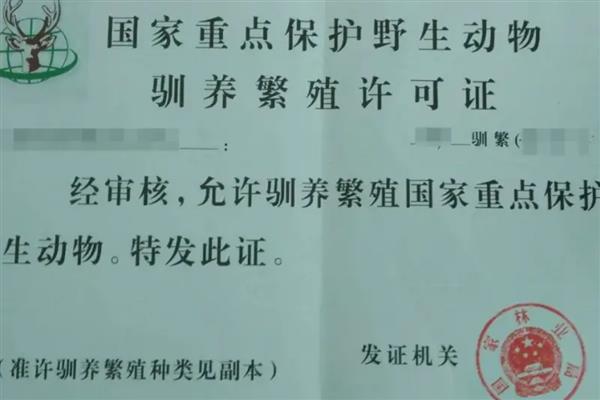 国家重点保护野生动物
驯养繁殖许可证
: , 驯繁(
经审核,允许驯养繁殖国家重点保护
生动物。特发此证。
(准许驯养繁殖种类见副本)
发证机关
国家林业局